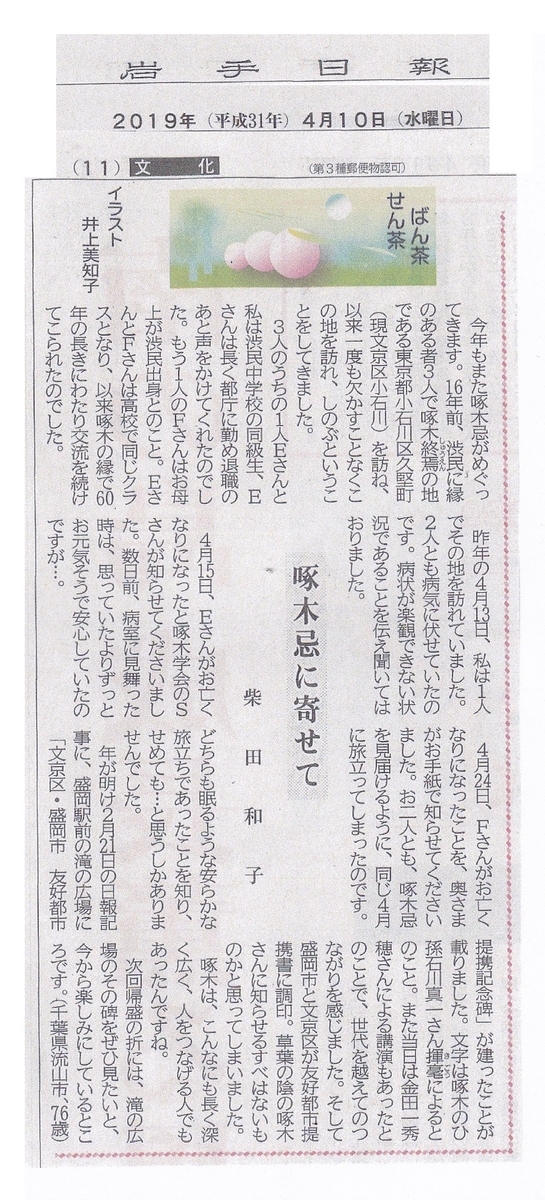 岩手日報
2019年（平成31年）4月10日（水曜日）
（11）文化
（第3種郵便物認可）
ばん茶
せん茶
イラスト
井上美知子
啄木忌に寄せて
柴田和子
今年もまた啄木忌がめぐっ
てきます。16年前、渋民に縁
のある者3人で啄木終焉の地
である東京都小石川区久堅町
（現文京区小石川）を訪ね、
以来一度も欠かすことなくこ
の地を訪れ、しのぶというこ
とをしてきました。
3人のうちの1人Eさんと
私は渋民中学校の同級生、E
さんは長く都庁に勤め退職の
あと声をかけてくれたのでし
た。もう1人のFさんはお母
上が渋民出身とのこと。Eさ
んとFさんは高校で同じクラ
スとなり、以来啄木の縁で60
年の長きにわたり交流を続け
てこられたのでした。
昨年の4月13日、私は1人
でその地を訪れていました。
2人とも病気に伏せていたの
です。病状が楽観できない状
況であることを伝え聞いては
おりました。
4月15日、Eさんがお亡く
なりになったと啄木学会のS
さんが知らせてくださいまし
た。数日前、病室に見舞った
時は、思っていたよりずっと
お元気そうで安心していたの
ですが…。
4月24日、Fさんがお亡く
なりになったことを、奥さま
がお手紙で知らせてください
ました。お二人とも、啄木忌
を見届けるように、同じ4月
に旅立ってしまったのです。
どちらも眠るような安らかな
旅立ちであったことを知り、
せめても…と思うしかありま
せんでした。
年が明け2月21日の日報記
事に、盛岡駅前の滝の広場に
「文京区・盛岡市　友好都市
提携記念碑」が建ったことが
載りました。文字は啄木のひ
孫石川真一さん揮毫によると
のこと。また当日は金田一秀
穂さんによる講演もあったと
のことで、世代を越えてのつ
ながりを感じました。そして
盛岡市と文京区が友好都市提
携書に調印。草葉の陰の啄木
さんに知らせるすべはないも
のかと思ってしまいました。
啄木は、こんなにも長く深
く広く、人をつなげる人でも
あったんですね。
次回帰盛の折には、滝の広
場のその碑をぜひ見たいと、
今から楽しみにしているとこ
ろです。（千葉県流山市、76歳）